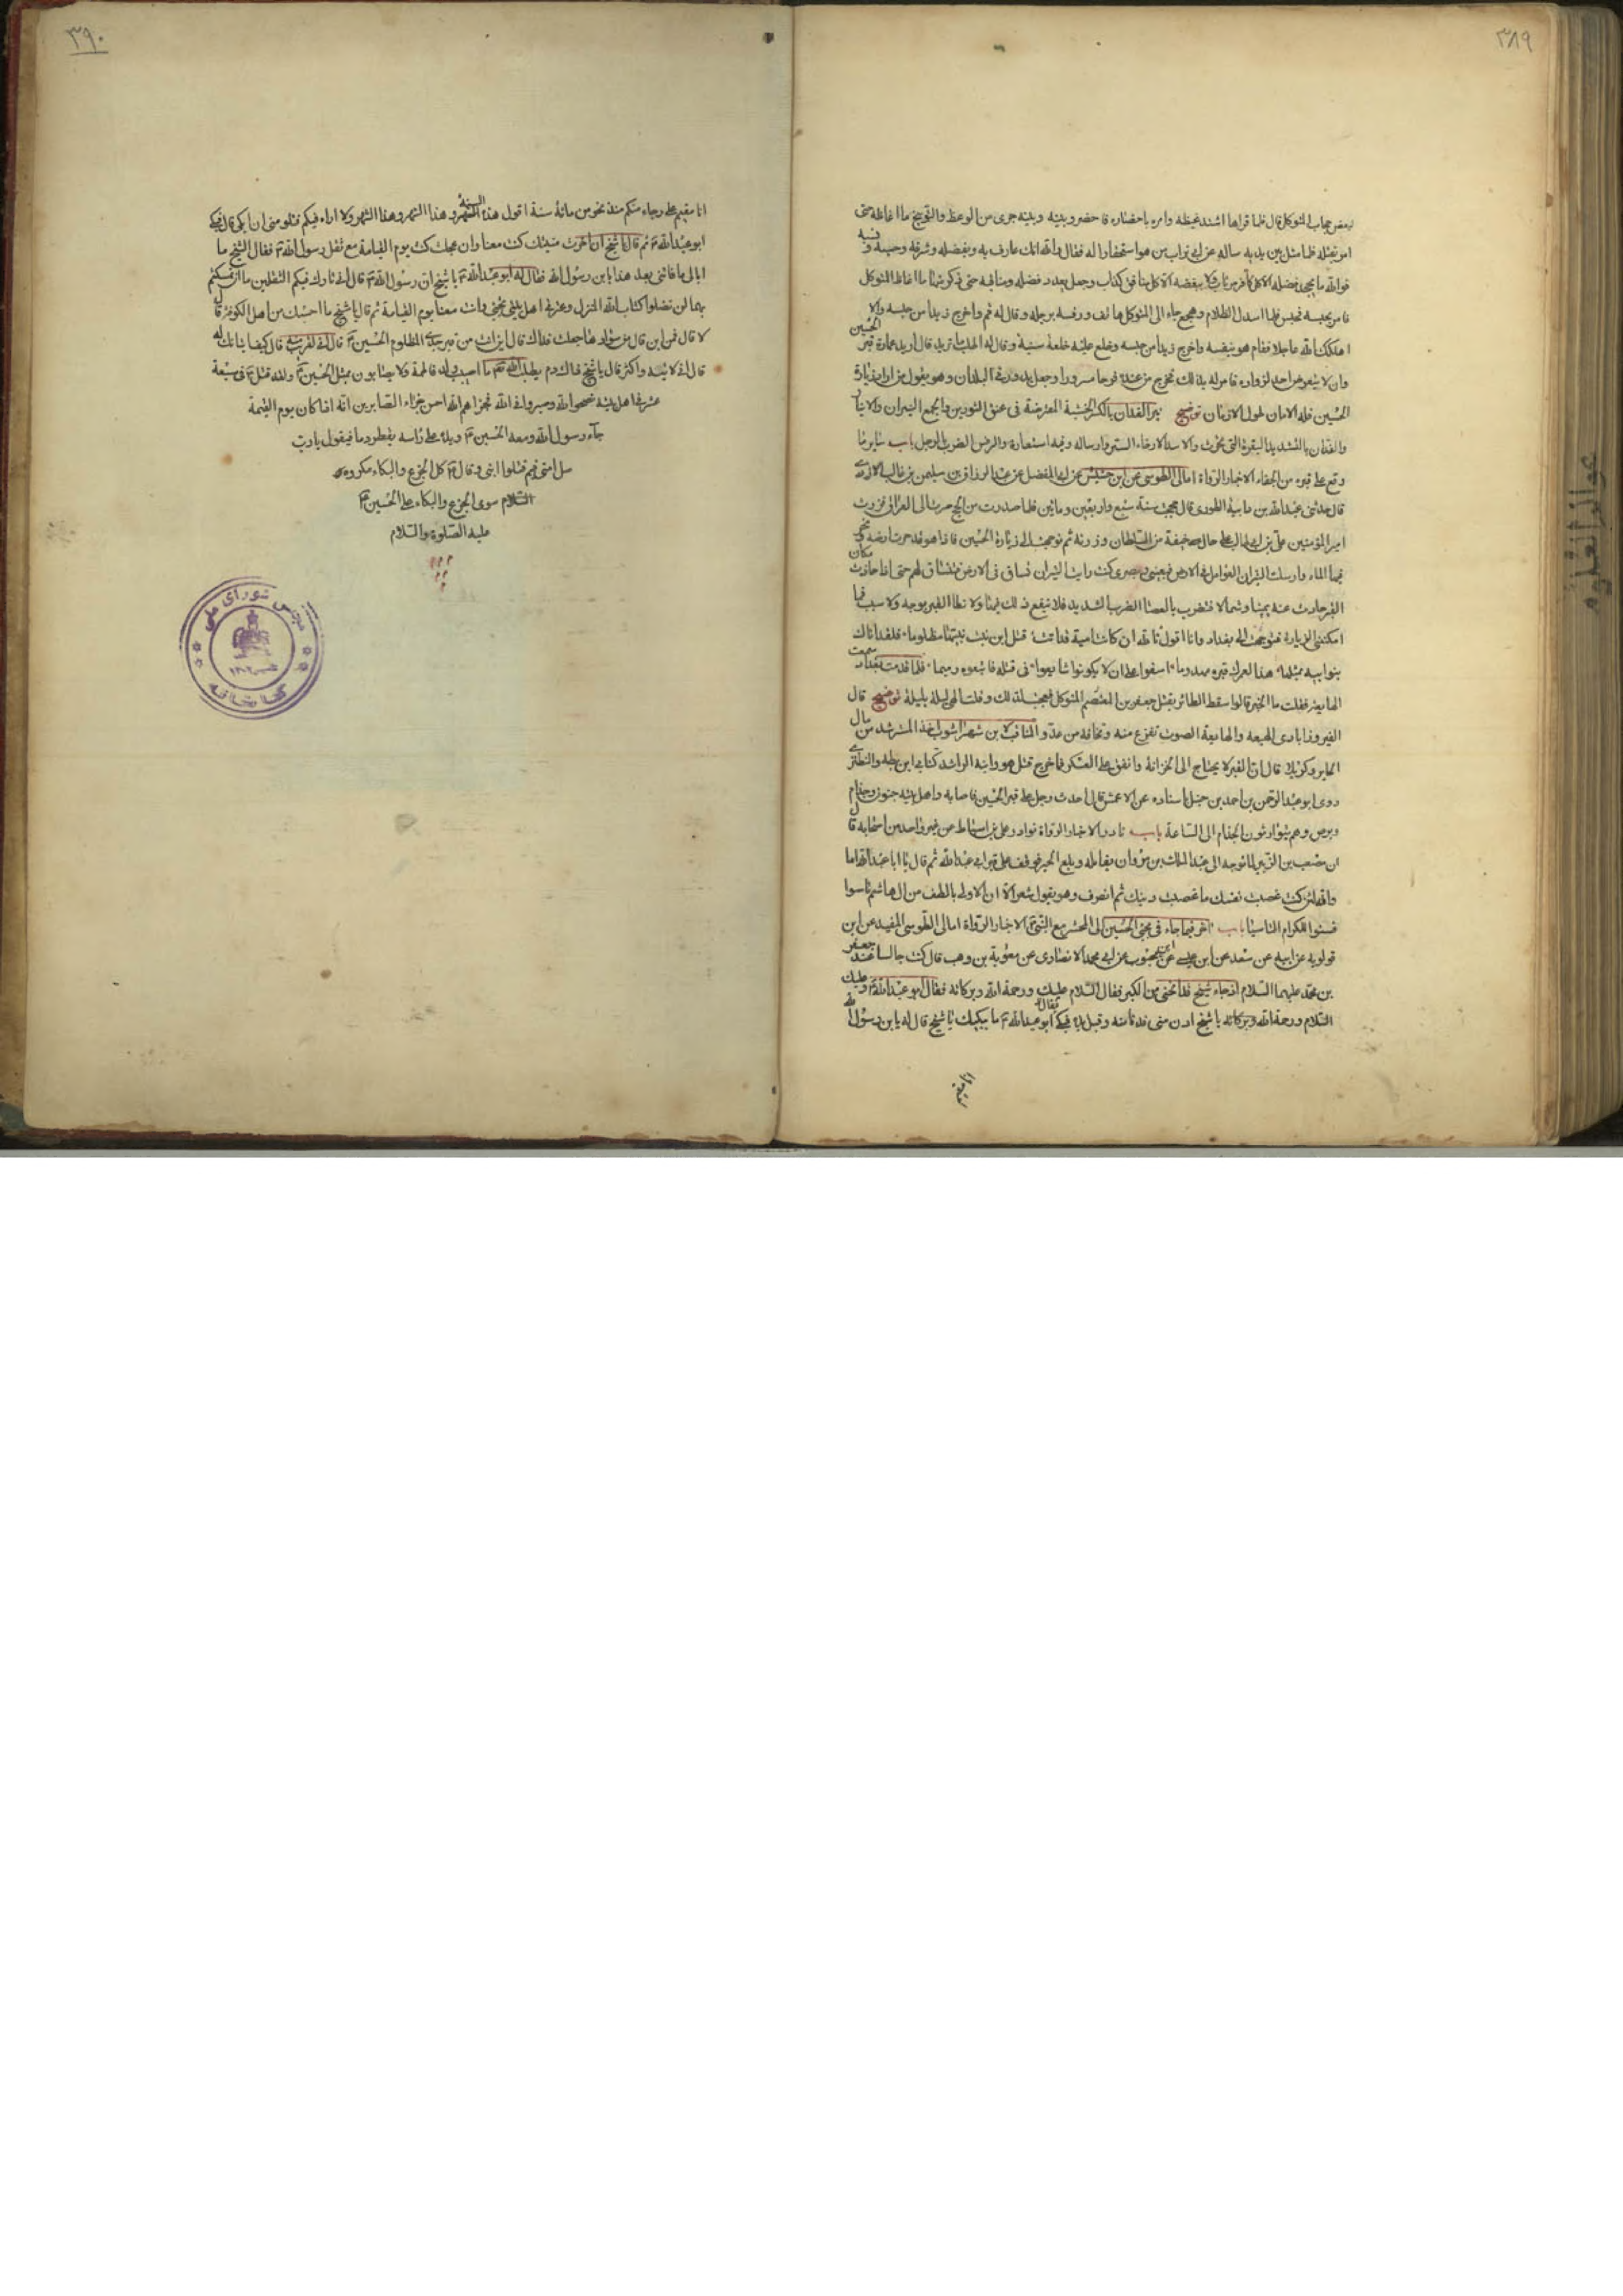 ٣٨٩
لبعض حجاب المتوكل قال فلما قراها اشتد غيظه وامر باحضاره فاحضر وبينه وبينه جرى من الوعظ والتوبيخ ما اغاظه حتى
امر بقتله فلما مثل بين يديه ساله عن ابي تراب من هو استحقارا له فقال والله انك عارف به وبفضله وشرفه وحسبه ونسبه
فوالله ما يجحد فضله الا كل كافر مرتاب ولا يبغضه الا كل منافق كذاب وجعل يعدد فضله ومناقبه حتى ذكر منها ما اغاظ المتوكل
فامر بحبسه فحبس فلما اسدل الظلام وهجع جاء الى المتوكل هاتف ورفسه برجله وقال له قم واخرج زيدا من حبسه والا
اهلكك الله عاجلا فقام هو بنفسه واخرج زيدا من حبسه وخلع عليه خلعة سنية وقال له اطلب ما تريد قال اريد عمارة قبر الحسين
وان لا يتعرض احد لزواره فامر له بذلك فخرج من عنده فرحا مسرورا وجعل يدور في البلدان وهو يقول من اراد زيارة
الحسين فله الامان طول الازمان توضيح نير الفدان بالكسر الخشبة المعترضة فى عنق الثورين والجمع النيران والانيار
والفدان بالتشديد البقرة التى تحرث والاسدال ارخاء الستر وارساله وفيه استعارة والرفس الضرب بالرجل باب ساير ما
وقع على قبره من الجفاء الاخبار الرواة امالى الطوسى عن ابن حشيش عن ابي المفضل عن عبد الرزاق بن سليمن بن غالب الازدى
قال حدثنى عبد الله بن دانية الطورى قال حججت سنة سبع واربعين ومائتين فلما صدرت من الحج صرت الى العراق فزرت
امير المؤمنين على بن ابي طالب على حال خيفة من السلطان وزرته ثم توجهت الى زيارة الحسين فاذا هو قد حرث ارضه ومخر
فيها الماء وارسلت الثيران العوامل فى الارض فبعينى وبصرى كنت رايت الثيران تساق فى الارض فتنساق لهم حتى اذا حاذت مكان
القبر حادت عنه يمينا وشمالا فتضرب بالعصا الضرب الشديد فلا ينفع ذلك فيها ولا تطا القبر بوجه ولا سبب فما
امكننى الزيارة فتوجهت الى بغداد وانا اقول تالله ان كانت امية قد اتت قتل ابن بنت نبيها مظلوما فلقد اتاك
بنوابيه بمثلها هذا لعمرك قبره مهدوما اسفوا على ان لا يكونوا شايعوا فى قتله فتتبعوه رميما فلما قدمت بغداد سمعت
الهايعة فقلت ما الخبر قالوا سقط الطائر بقتل جعفر بن المعتصم المتوكل فعجبت لذلك وقلت الهى ليلة بليلة توضيح قال
الفيروزابادى الهيعة والهايعة الصوت تفزع منه وتخافه من عدو المناقب لابن شهراشوب اخذ المسترشد من مال
الحاير وكربلا قال ان القبر لا يحتاج الى الخزانة وانفق على العسكر فلما خرج قتل هو وابنه الراشد كتابى ابن بطه والنطنزى
روى ابو عبد الرحمن بن احمد بن حنبل باسناده عن الاعمش قال احدث رجل على قبر الحسين فاصابه واهل بيته جنون وجذام
وبرص وهم يتوارثون الجذام الى الساعة باب نادر الاخبار الرواة نوادر على بن اسباط عن غير واحد من اصحابه قال
ان مصعب بن الزبير لما توجه الى عبد الملك بن مروان يقاتله وبلغ الحير فوقف على قبر ابي عبد الله ثم قال يا ابا عبد الله اما
والله لئن كنت غصبت نفسك ما غصبت دينك ثم انصرف وهو يقول شعر الا ان الاولى بالطف من ال هاشم تاسوا
فسنوا للكرام التاسيا باب اخر فيما جاء فى مجئ الحسين الى المحشر مع النبى الاخبار الرواة امالى الطوسى المفيد عن ابن
قولويه عن ابيه عن سعد عن ابن عيسى عن ابن محبوب عن ابي محمد الانصارى عن معوية بن وهب قال كنت جالسا عند جعفر
بن محمد عليهما السلام اذ جاء شيخ قد انحنى من الكبر فقال السلام عليك ورحمة الله وبركاته فقال ابو عبد الله وعليك
السلام ورحمة الله وبركاته يا شيخ ادن منى فدنا منه وقبل يده فبكى فقال ابو عبد الله ما يبكيك يا شيخ قال له يابن رسول الله
٣٩٠
انا مقيم على رجاء منكم منذ نحو من مائة سنة اقول هذه السنة وهذا الشهر وهذا الشهر ولا اراه فيكم فتلومنى ان ابكى قال فبكى
ابو عبد الله ثم قال يا شيخ ان اخرت منيتك كنت معنا وان عجلت كنت يوم القيامة مع ثقل رسول الله فقال الشيخ ما
ابالى ما فاتنى بعد هذا يابن رسول الله فقال له ابو عبد الله يا شيخ ان رسول الله قال انى تارك فيكم الثقلين ما ان تمسكتم
بهما لن تضلوا كتاب الله المنزل وعترتى اهل بيتى تجئ وانت معنا يوم القيامة ثم قال يا شيخ ما احسبك من اهل الكوفة قال
لا قال فمن اين قال من سوادها جعلت فداك قال اين انت من قبر جدى المظلوم الحسين قال انى لقريب منه قال كيف اتيانك له
قال انى لاتيه واكثر قال يا شيخ ذاك دم يطلب الله به ما اصيب ولد فاطمة ولا يصابون بمثل الحسين ولقد قتل فى سبعة
عشر من اهل بيته نصحوا لله وصبروا فى الله فجزاهم الله احسن جزاء الصابرين انه اذا كان يوم القيمة
جاء رسول الله ومعه الحسين ويده على راسه يقطر دما فيقول يا رب
سل امتى فيم قتلوا ابنى وقال كل الجزع والبكاء مكروه
السلام سوى الجزع والبكاء على الحسين
عليه الصلوة والسلام
مجلس شوراى ملى
كتابخانه